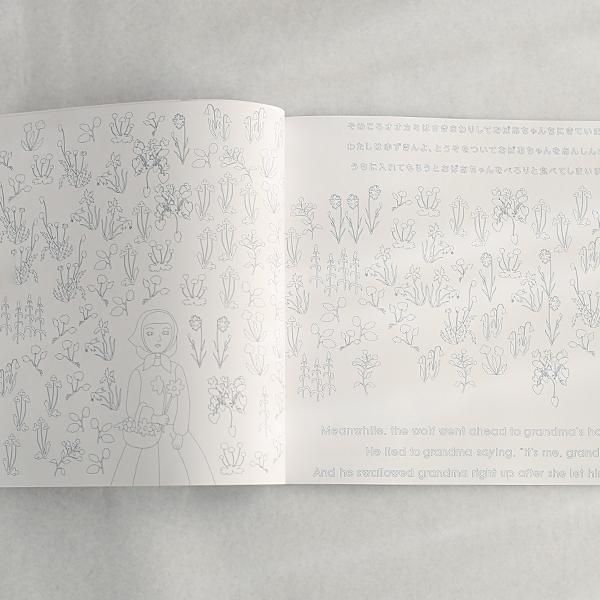 そのころオオカミはさきまわりしておばあちゃんちにきていま
わたしはあずきんよ、とうそをついておばあちゃんをあんしん
うちに入れてもらうとおばあちゃんをぺろりと食べてしまいま
Meanwhile, the wolf went ahead to grandma's ho
He lied to grandma saying, "It's me, grand
And he swallowed grandma right up after she let him